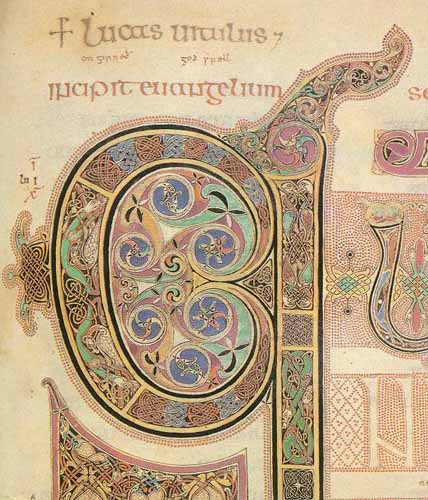 + Lucas uitulus ⁊
onginneð godspell
incipit euangelium se
Qu
N